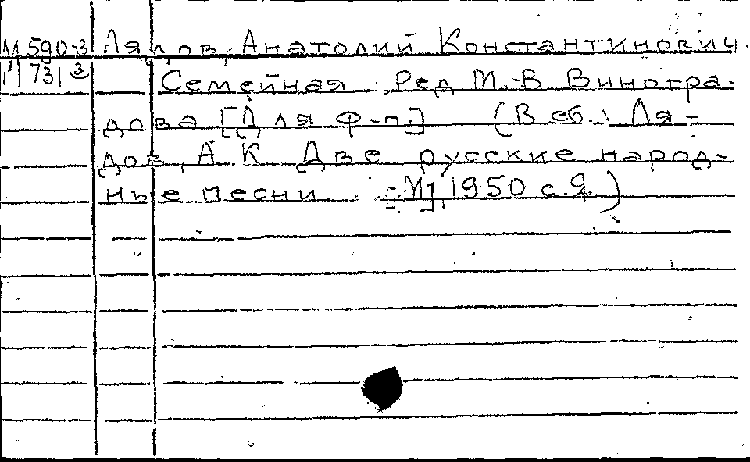 М 590-3 Лядов, Анатолий Константинович.
М 731 3 Семейная. Ред. М. В. Виногра-
дова [Для ф-п.] (В сб.: Ля-
дов, А. К. Две русские народ-
ные песни. - М., 1950 с. 9.)